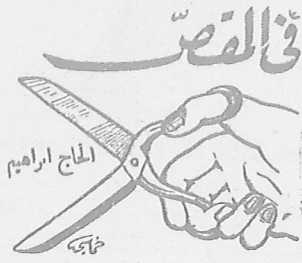 في المقصّ
الحاج ابراهيم